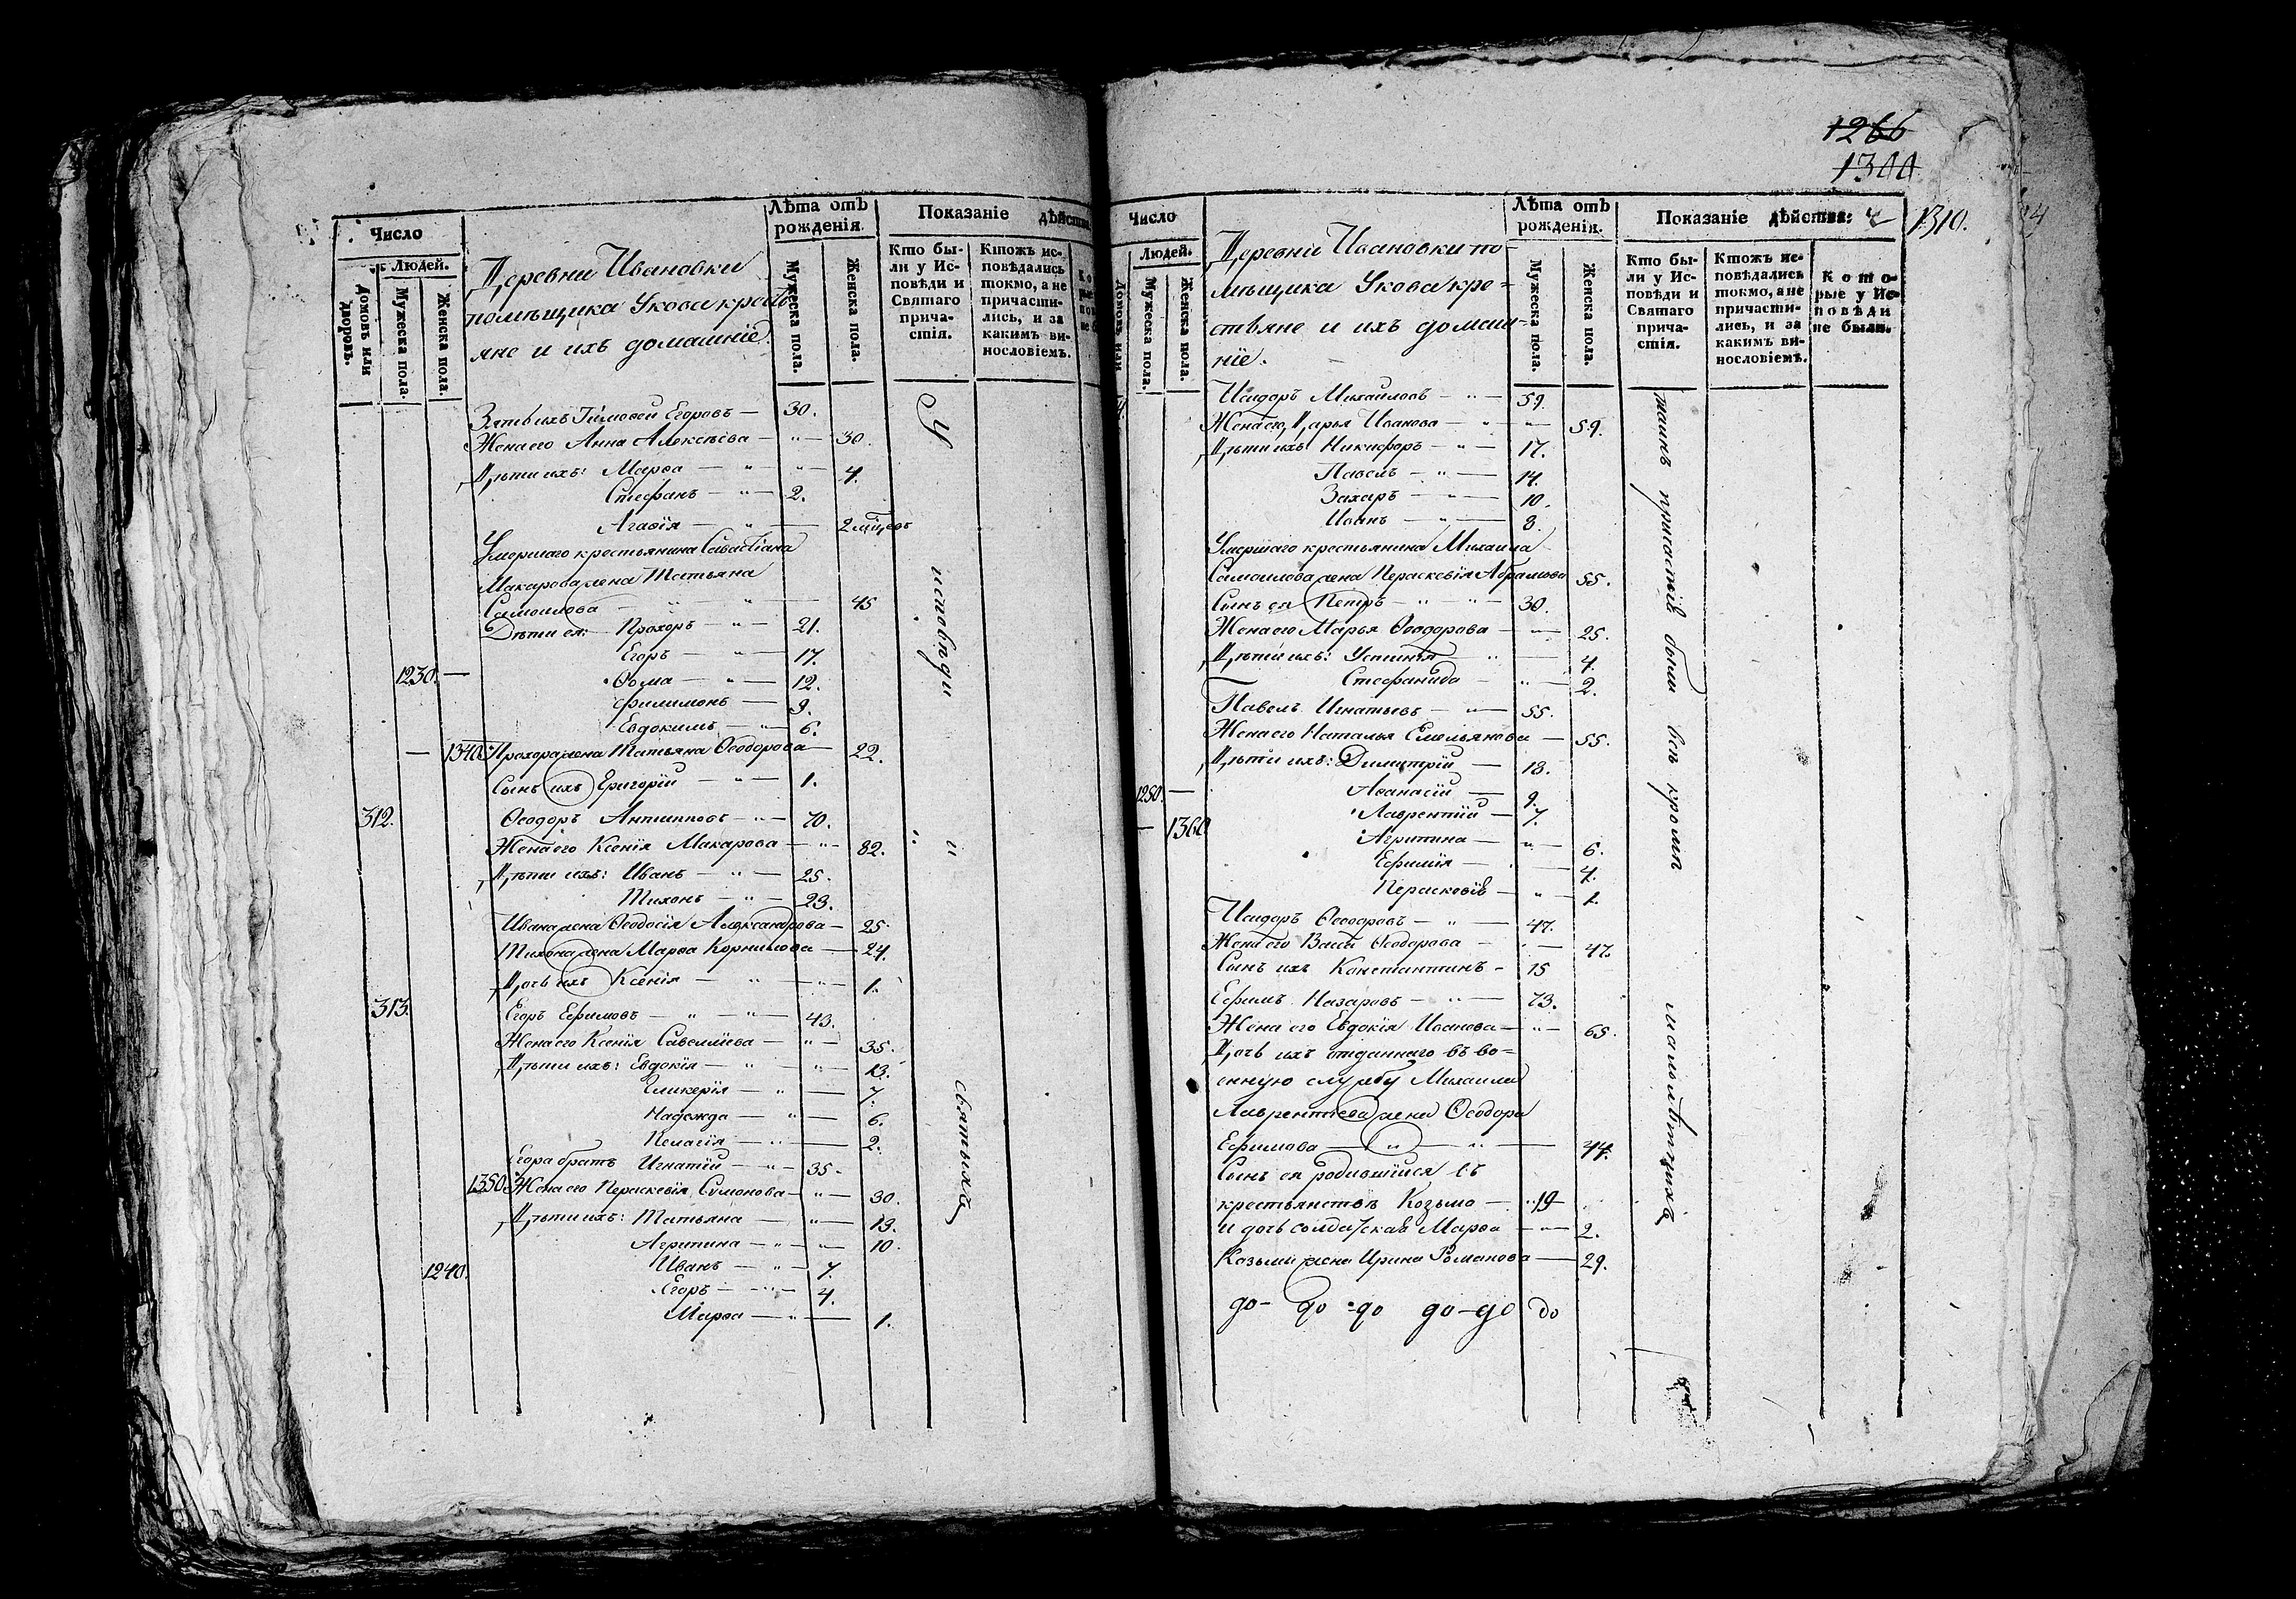 Число
Людей.
Домовъ или дворовъ.
Мужеска пола.
Женска пола.
Деревни Ивановки
помѣщика Укова крестъ
яне и ихъ домашніе.
Лѣта отъ рожденія.
Мужеска пола.
Женска пола.
Показаніе дѣйства
Кто бы-
ли у Ис-
повѣди и
Святаго
прича-
стія.
Ктожъ ис-
повѣдались
токмо, а не
причасти-
лись, и за
какимъ ви-
нословіемъ.
Зять ихъ Тимофей Егоровъ — 30.
Жена его Анна Алексѣева — " — 30.
Дѣти ихъ: Марѳа — " — " — 4.
Стефанъ — " — 2.
Агаѳія — " — 2 мцѣвъ
Умершаго крестьянина Савастіана
Макарова жена Татьяна
Самоилова — " — " — 45
Дѣти ея: Прохоръ — " — 21.
Егоръ — " — 17.
1230. — Ѳома — " — 12.
Филимонъ — 9.
Евдокимъ — " — 6.
— 1340. Прохора жена Татьяна Ѳеодорова — 22.
Сынъ ихъ Григорій — " — 1.
312. Ѳеодоръ Антиповъ — " — 70.
Жена его Ксенія Макарова — " — 82.
Дѣти ихъ: Иванъ — " — 25.
Тихонъ — " — 23.
Ивана жена Ѳеодосія Александрова — 25.
Тихона жена Марѳа Корнилова — 24.
Дочь ихъ Ксенія — " — " — 1.
313. Егоръ Ефимовъ — " — " — 43.
Жена его Ксенія Савеліева — " — 35.
Дѣти ихъ: Евдокія — " — " — 13.
Гликерія — " — 7.
Надежда — " — 6.
Пелагія — " — 2.
Егора братъ Игнатій — " — 35.
1350. Жена его Пераскевія Симонова — " — 30.
Дѣти ихъ: Татьяна — " — 13.
Агрипина — " — " — 10.
1240. Иванъ — " — 7.
Егоръ — " — 4.
Марѳа — " — 1.
У исповѣди и святыхъ
1266
1300
1310.
Число
Людей.
Домовъ или
Мужеска пола.
Женска пола.
Деревни Ивановки по-
мѣщика Укова кре-
стьяне и ихъ домаш-
ніе.
Лѣта отъ рожденія.
Мужеска пола.
Женска пола.
Показаніе дѣйства:
Кто бы-
ли у Ис-
повѣди и
Святаго
прича-
стія.
Ктожъ ис-
повѣдались
токмо, а не
причасти-
лись, и за
какимъ ви-
нословіемъ.
Кото-
рые у Ис-
повѣди
не были.
Исидоръ Михайловъ — " — 59.
Жена его Дарья Иванова — " — " — 59.
Дѣти ихъ: Никифоръ — " — 17.
Павелъ — " — 14.
Захаръ — " — 10.
Иванъ — " — 8.
Умершаго крестьянина Михаила
Самоилова жена Пераскевія Абрамова 55.
Сынъ ея Петръ — " — " — 30.
Жена его Марья Ѳеодорова — " — 25.
Дѣти ихъ: Устинья — " — 4.
Стефанида — " — 2.
Павелъ Игнатьевъ — " — 55.
Жена его Наталья Емельянова — 55.
Дѣти ихъ: Димитрій — 18.
1250. — Аѳанасій — 9.
Лаврентій — 7.
— 1360 Агрипина — " — 6.
Ефимія — 4.
Пераскевія — " — 1.
Исидоръ Ѳеодоровъ — " — 47.
Жена его Васса Ѳеодорова — " — 47.
Сынъ ихъ Константинъ — 15
Ефимъ Назаровъ — " — 73.
Жена его Евдокія Иванова — " — 65.
Дочь ихъ отданнаго въ во-
енную службу Михаила
Лаврентіева жена Ѳеодора
Ефимова — " — " — 44.
Сынъ ея родившійся въ
крестьянствѣ Козьмо — 19
и дочь солдатская Марѳа — " — 2.
Козьми жена Ирина Романова — 29.
до- до -до до-до до
таинъ причастій были всѣ кромѣ малолѣтнихъ